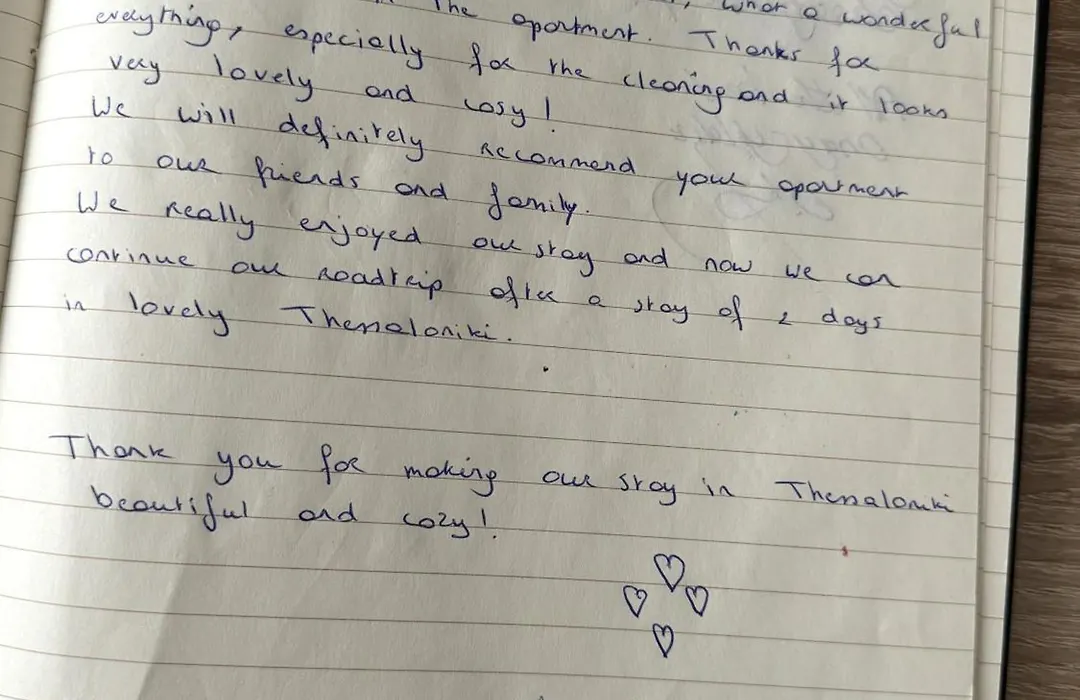 the apartment. what a wonderful
everything, especially for the cleaning and it looks
very lovely and cosy!
We will definitely recommend your apartment
to our friends and family.
We really enjoyed our stay and now we can
continue our roadtrip after a stay of 2 days
in lovely Thessaloniki.
Thank you for making our stay in Thessaloniki
beautiful and cozy!